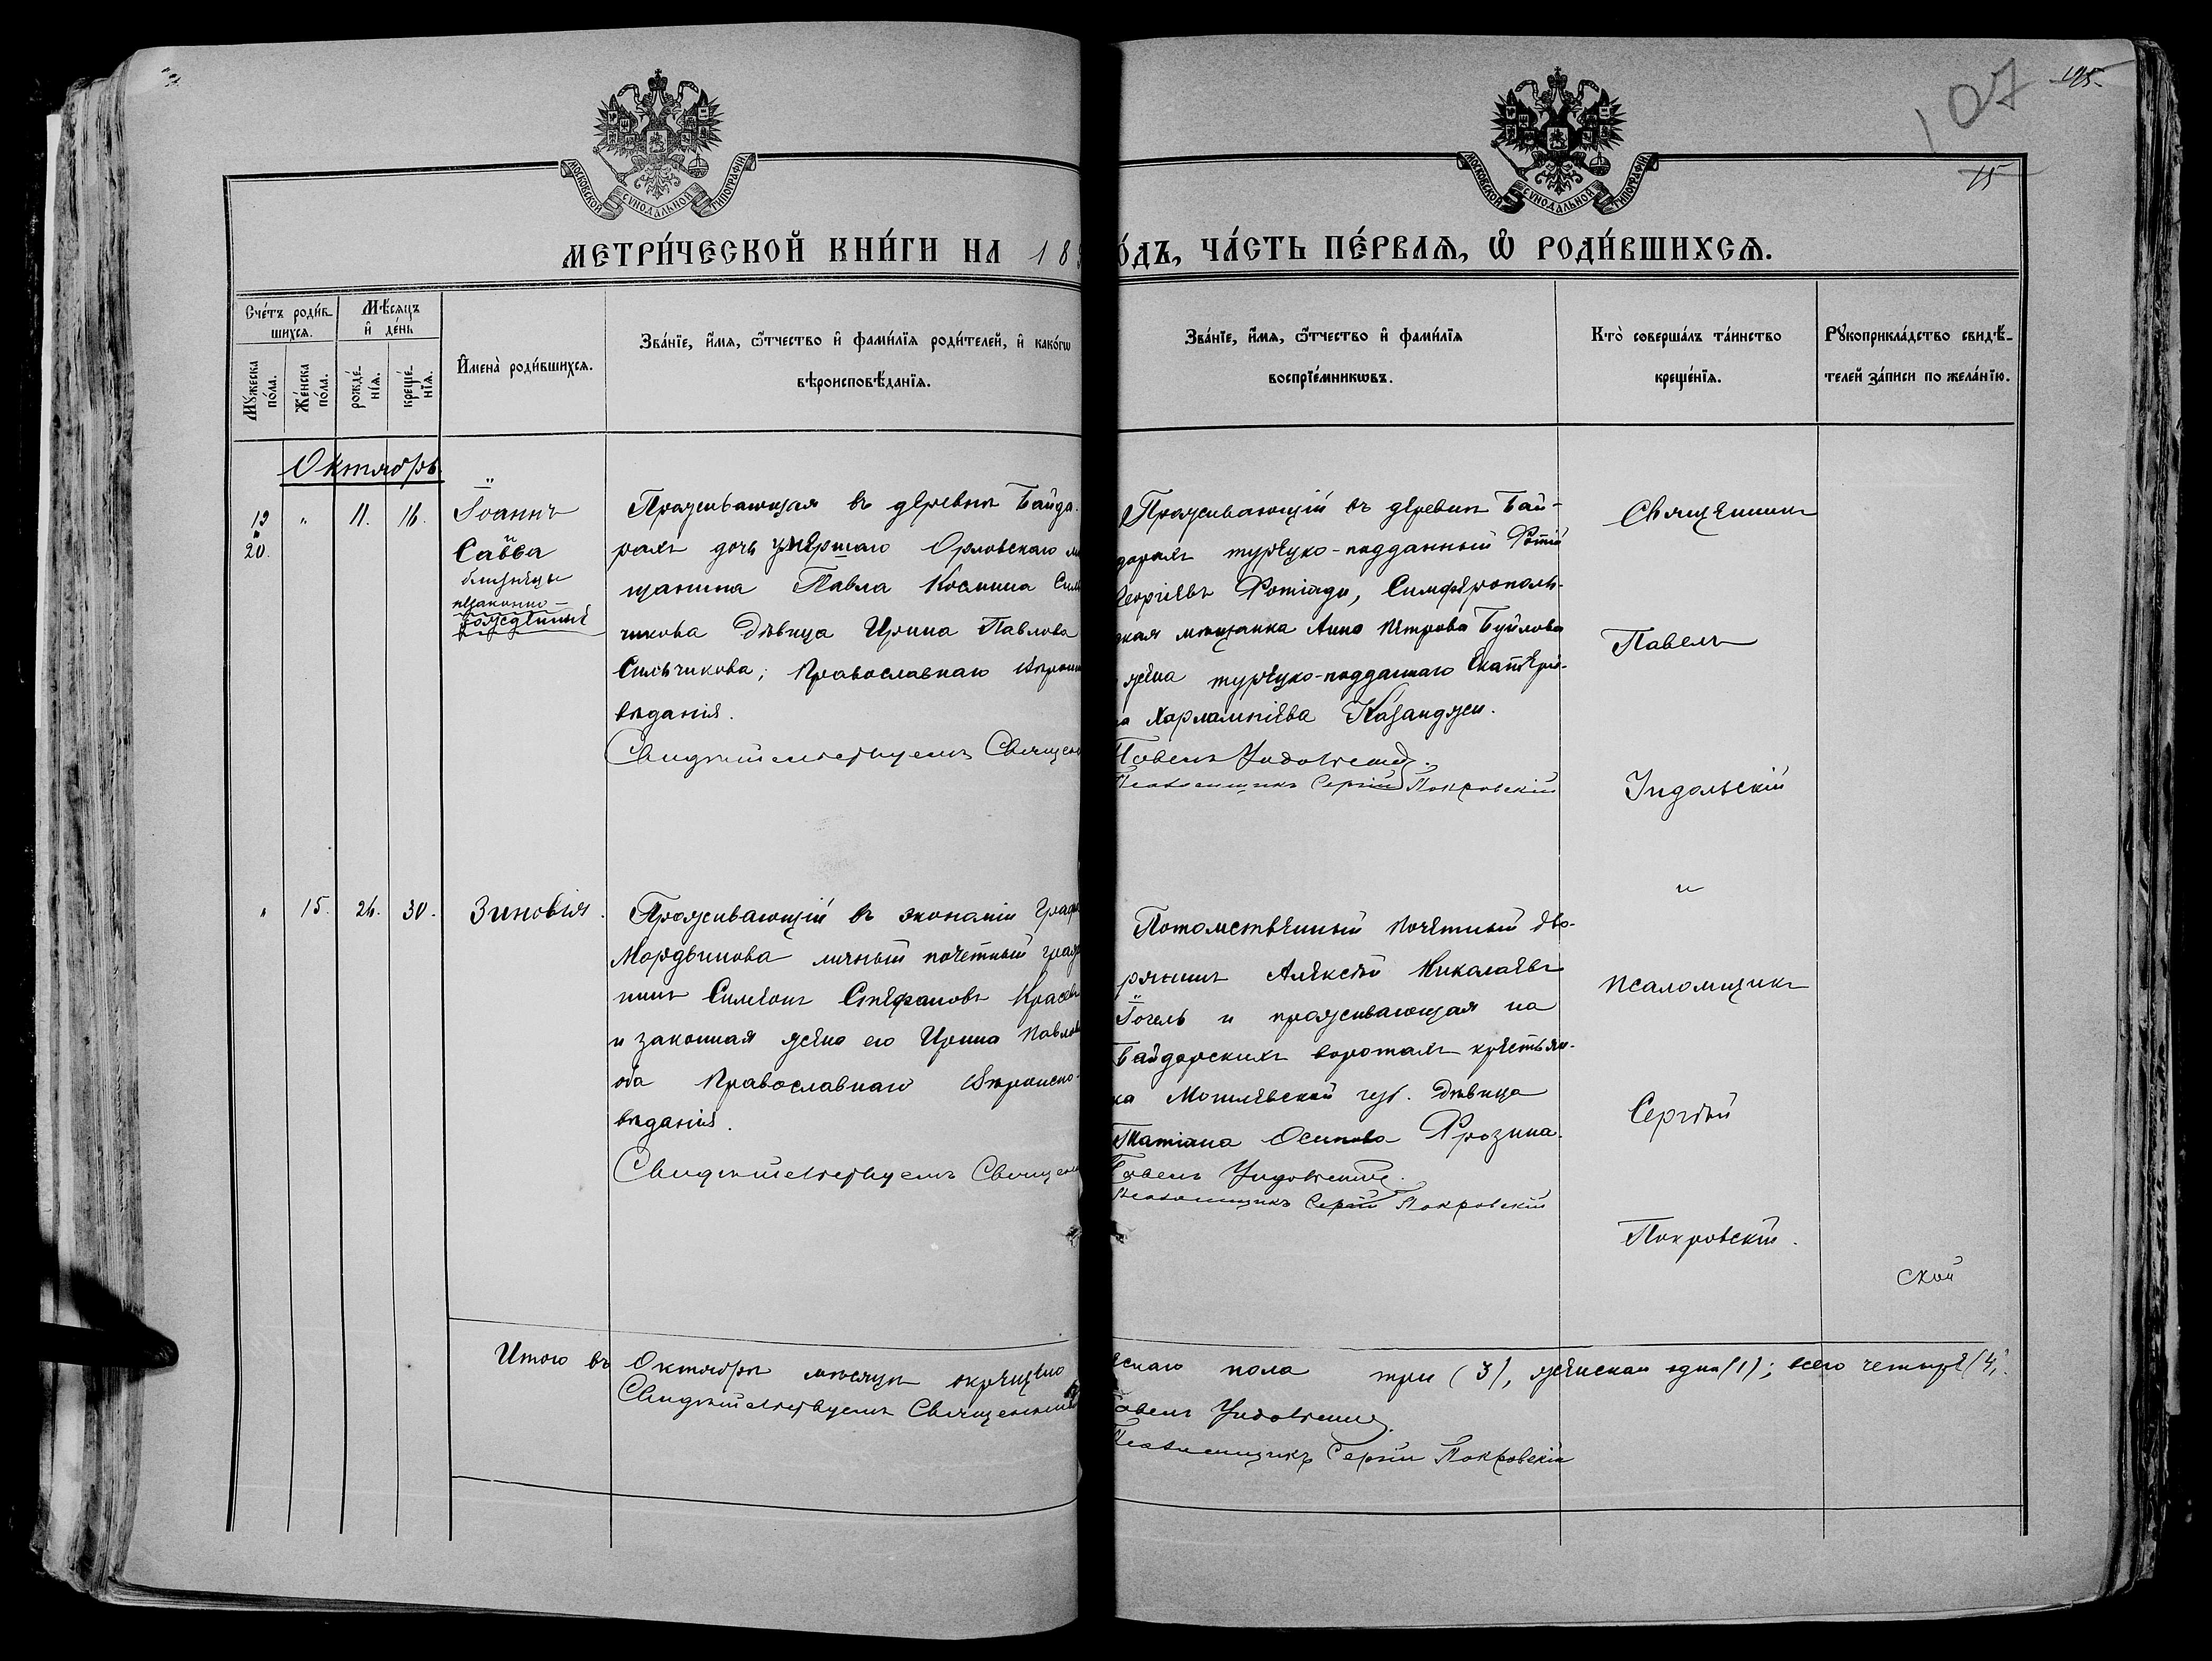 107
15
МОСКОВСКОЙ СѴНОДАЛЬНОЙ ТИПОГРАФІИ
МОСКОВСКОЙ СѴНОДАЛЬНОЙ ТИПОГРАФІИ
МЕТРИ́ЧЕСКОЙ КНИ́ГИ НА 18
О́ДЪ, ЧА́СТЬ ПЕ́РВАѦ, Ѽ РОДИ́ВШИХСѦ.
Сче́тъ роди́в-
шихсѧ.
Мѣ́сѧцъ
и҆ де́нь
Мꙋ́жеска
по́ла.
Же́нска
по́ла.
рожде́-
нїѧ.
креще́-
нїѧ.
И҆мена̀ роди́вшихсѧ.
Зва́нїе, и҆́мѧ, ѻ҆́тчество и҆ фами́лїѧ роди́телей, и҆ како́гѡ
вѣроисповѣ́данїѧ.
Зва́нїе, и҆́мѧ, ѻ҆́тчество и҆ фами́лїѧ
воспрїе́мникѡвъ.
Кто̀ соверша́лъ та́инство
креще́нїѧ.
Рꙋкоприкла́дство свидѣ́-
телей за́писи по жела́нїю.
Октябрь
19 " 11. 16. Іоаннъ
и
20. Савва
близнецы
незаконно-
рожденные
Проживающая въ деревнѣ Байда-
рахъ дочь умершаго Орловскаго мѣ
щанина Павла Косьмина Силь
чикова Дѣвица Ирина Павлова
Сильчикова; Православнаго вѣроис
вѣданія.
Свидѣтельствуемъ Священ
Проживающій въ деревнѣ Бай-
дарахъ турецко-подданный Фотій
Георгіевъ Фотіади, Симферополь-
ская мѣщанка Анна Петрова Буйлова
жена турецко-подданнаго Екатери-
на Харлампіева Казанджи.
Павелъ Индольскій.
Псаломщикъ Сергій Покровскій
Священникъ
Павелъ
Индольскій
и
Псаломщикъ
Сергѣй
Покровскій.
" 15. 26. 30. Зиновія.
Проживающій въ экономіи Графа
Мордвинова личный почетный граж
нинъ Симеонъ Стефановъ Красов
и законная жена его Ирина Павло
ова Православнаго вѣроиспо-
вѣданія.
Свидѣтельствуемъ Священ
Потомственный почетный дво-
рянинъ Алексѣй Николаевъ
Гогель и проживающая на
Байдарскихъ воротахъ крестьян-
ка Могилевской губ. Дѣвица
Татіана Осипова Фрозина.
Павелъ Индольскій.
Псаломщикъ Сергій Покровскій
ской
Итого въ Октябрѣ мѣсяцѣ окрещено
скаго пола три (3), женскаго одна (1); всего четыре (4).
Свидѣтельствуемъ Священникъ
Павелъ Индольскій.
Псаломщикъ Сергій Покровскій